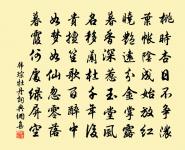 桃時杏日不爭濃
葉帳陰成始放紅
曉豔遠分金掌露
暮香深惹玉堂風
名移蘭杜千年後
貴擅笙歌百醉中
如夢如仙忽零落
暮霞何處綠屏空
韓琮牡丹詞典網集